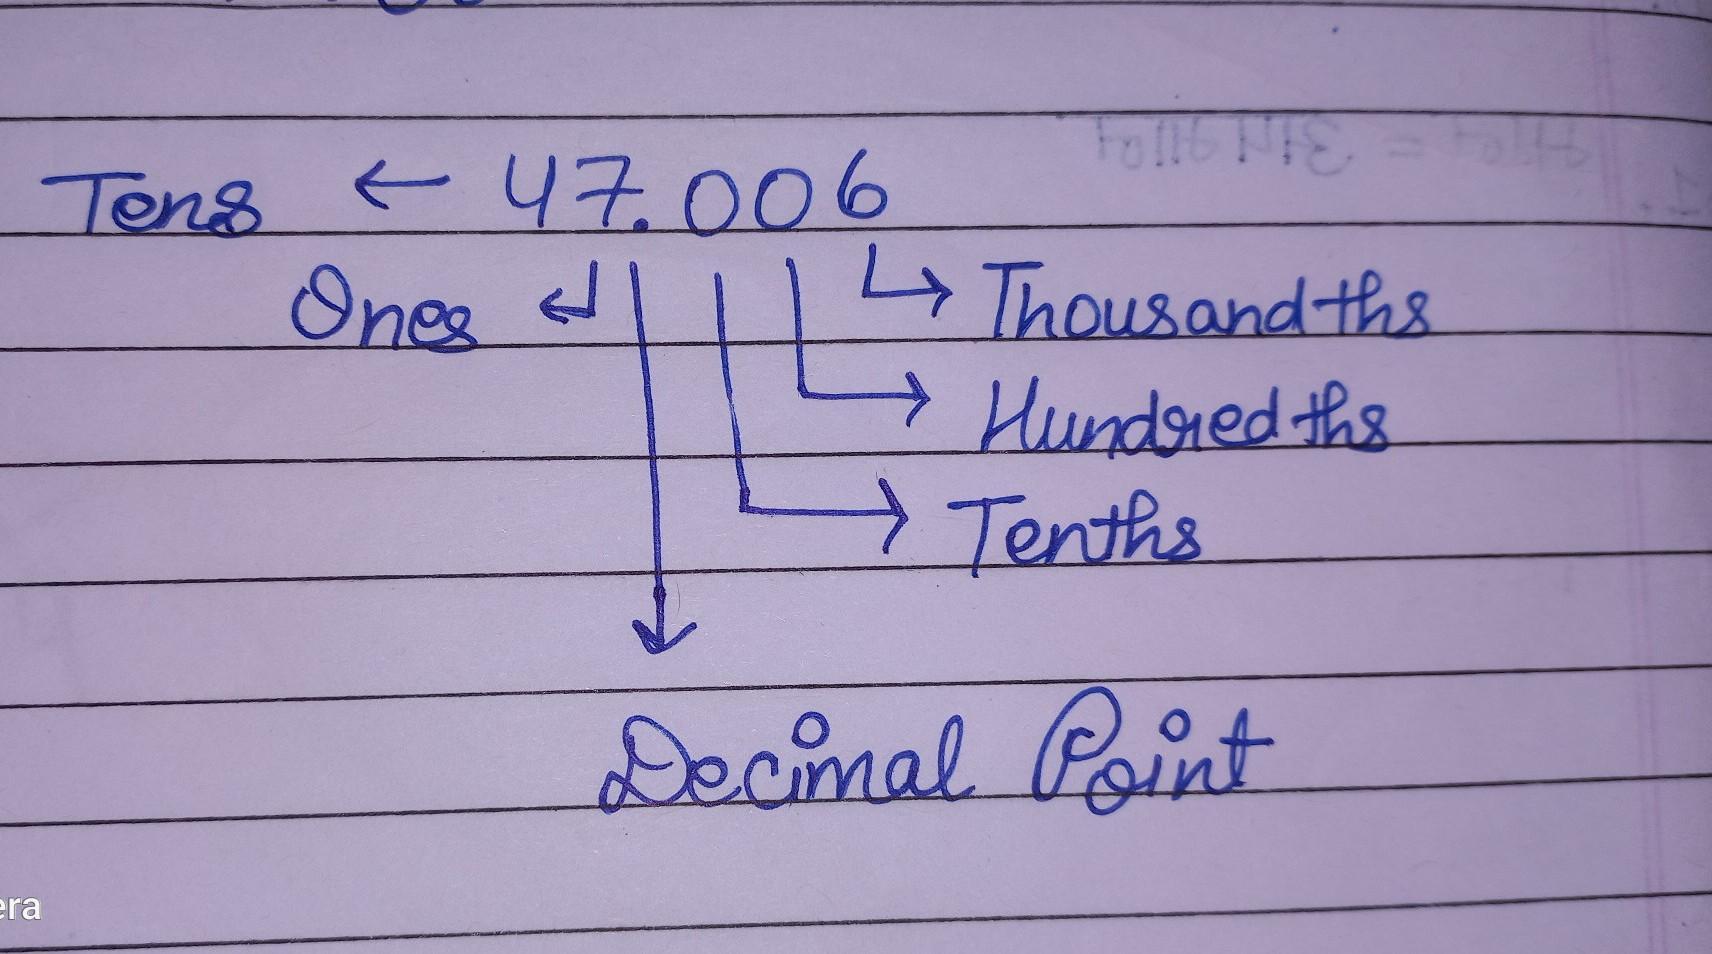 Tens ← 47.006
Ones
Thousandths
Hundredths
Tenths
Decimal Point
era